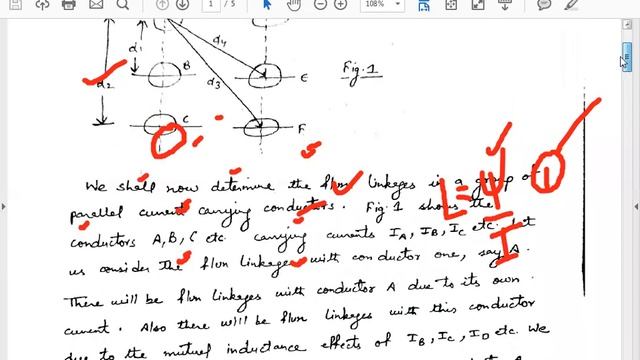 1 / 5
108%
d4
d1
B
E
Fig. 1
d2
d3
C
F
We shall now determine the flux linkages in a group of
parallel current carrying conductors. Fig. 1 shows the
conductors A, B, C etc. carrying currents IA, IB, IC etc. Let
us consider the flux linkages with conductor one, say A.
There will be flux linkages with conductor A due to its own
current. Also there will be flux linkages with this conductor
due to the mutual inductance effects of IB, IC, ID etc. We
L = ψ / I
1